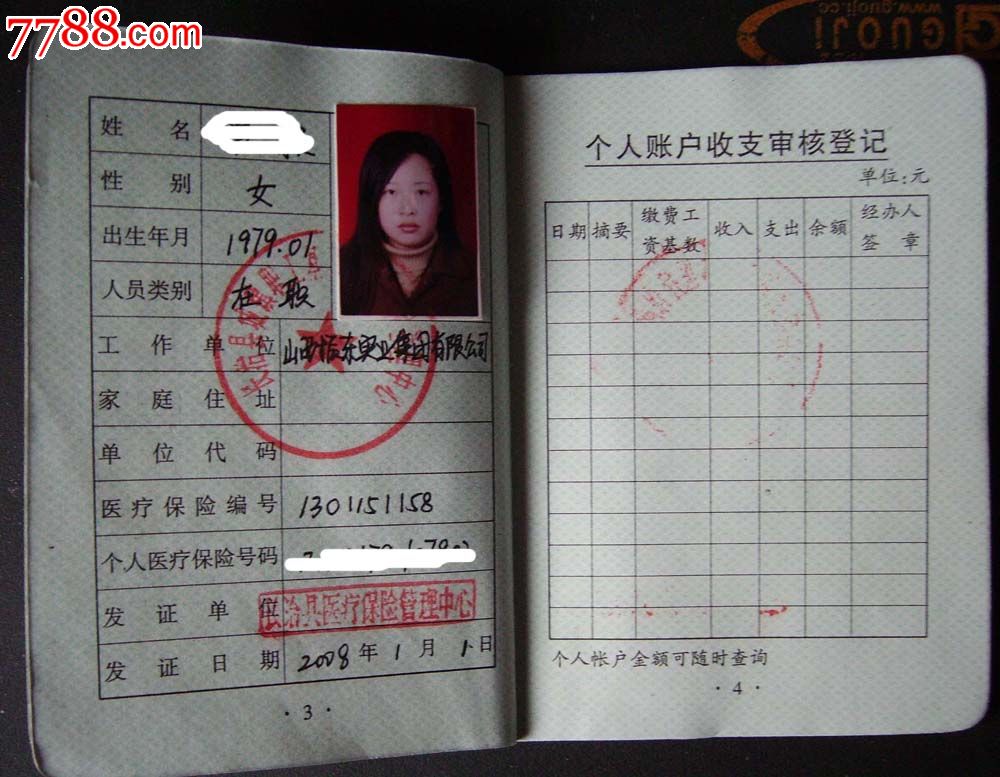 7788.com
GUOJI
www.guoji.cc
姓 名
性 别 女
出生年月 1979.01
人员类别 在职
工作单位 山西振东实业集团有限公司
家庭住址
单位代码
医疗保险编号 1301151158
个人医疗保险号码
发证单位 长治县医疗保险管理中心
发证日期 2008年1月1日
·3·
个人账户收支审核登记
单位:元
日期 摘要 缴费工资基数 收入 支出 余额 经办人签章
个人帐户金额可随时查询
·4·